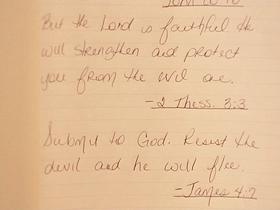 But the Lord is faithful He
will strengthen and protect
you from the evil one.
- 2 Thess. 3:3
Submit to God. Resist the
devil and he will flee.
- James 4:7